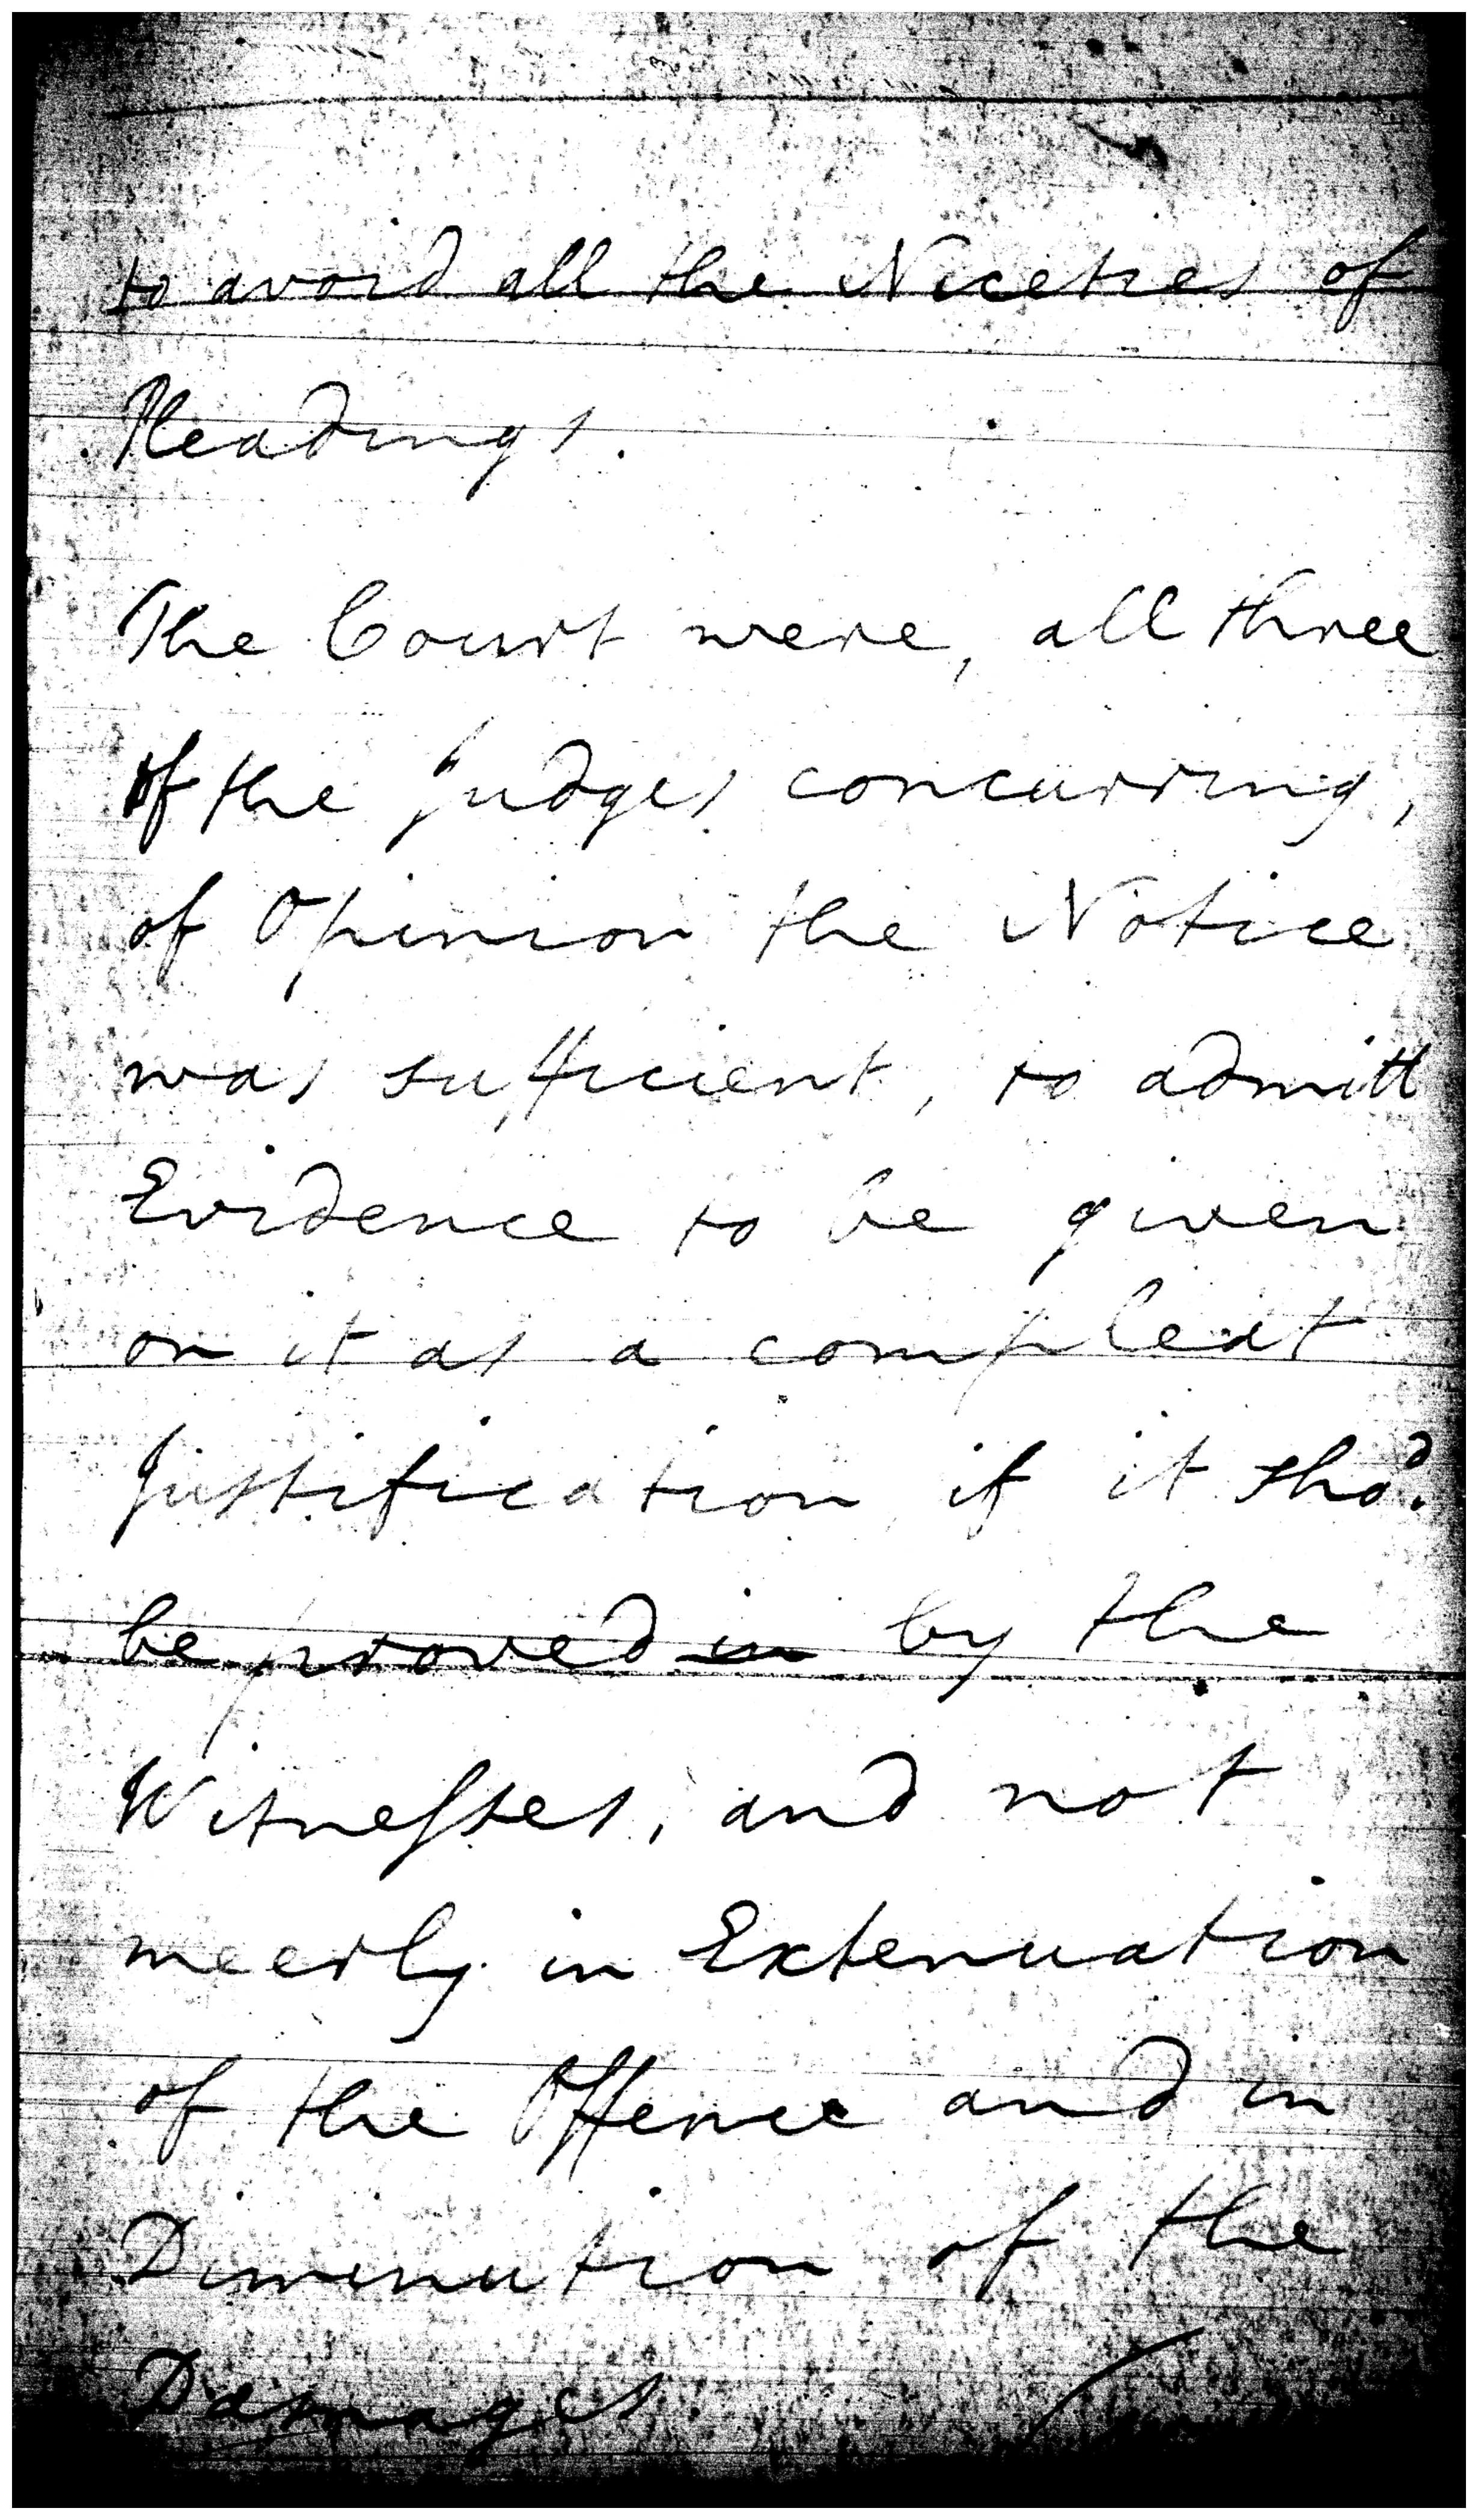 to avoid all the Niceties of
Pleadings.
The Court were, all three
of the Judges concurring,
of Opinion the Notice
was sufficient, to admitt
Evidence to be given
on it as a compleat
Justification if it shod.
be proved in by the
Witnesses, and not
meerly in Extenuation
of the Offence and in
Diminution of the
Damages.